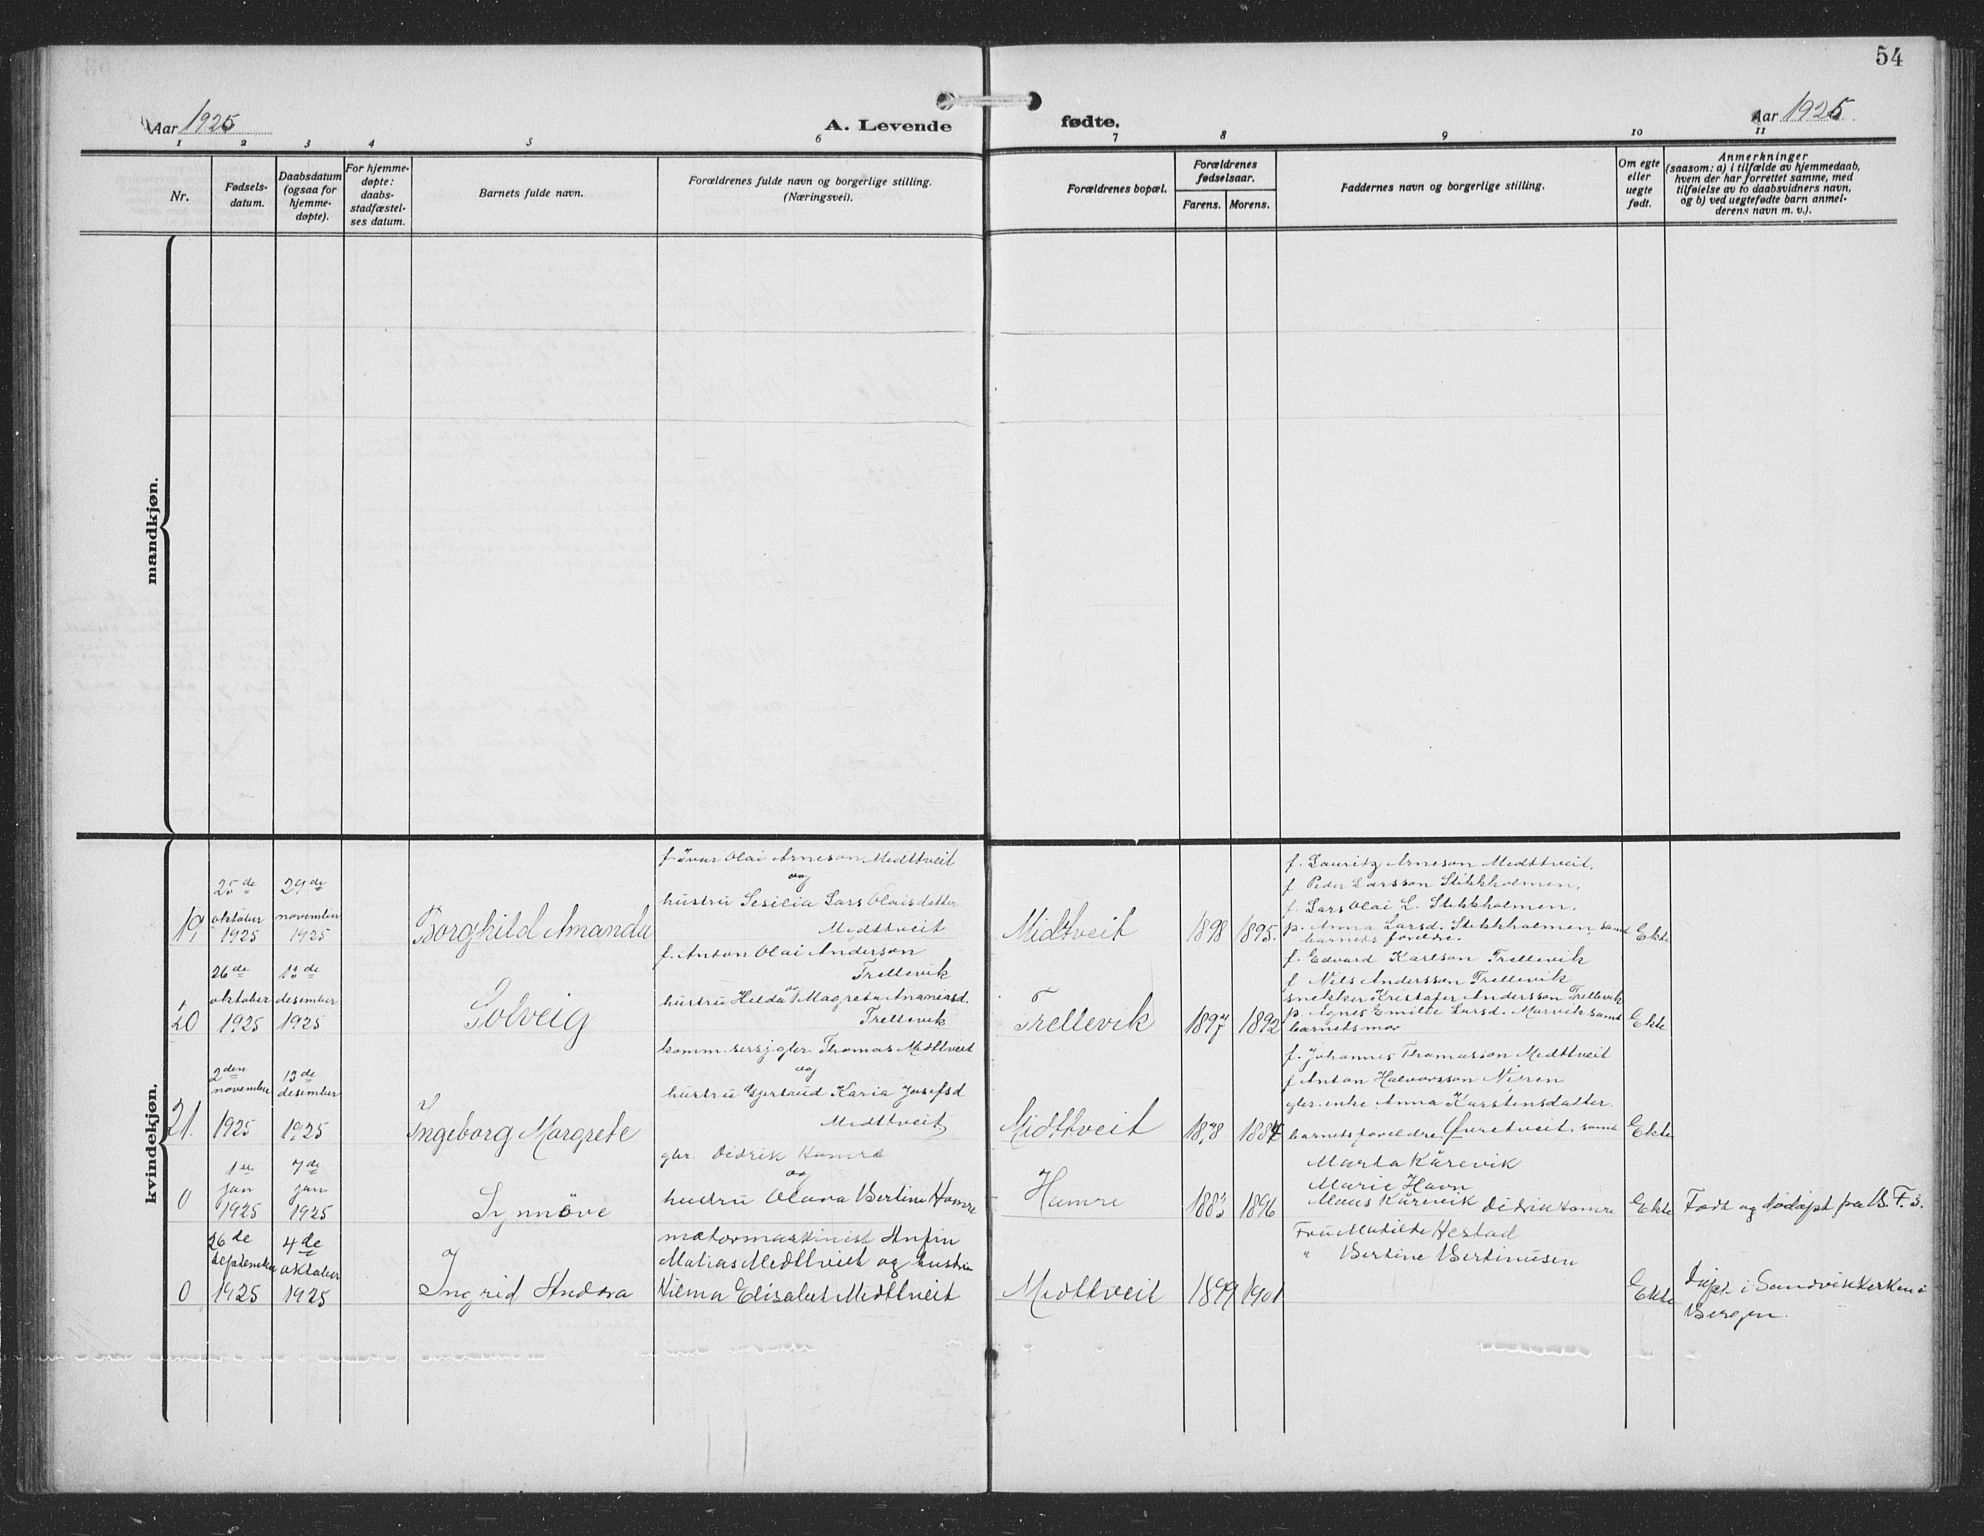 54
Aar 1925
A. Levende fødte.
Aar 1925.
1 2 3 4 5 6 7 8 9 10 11
Nr.
Fødsels-
datum.
Daabsdatum
(ogsaa for
hjemme-
døpte).
For hjemme-
døpte:
daabs-
stadfæstel-
ses datum.
Barnets fulde navn.
Forældrenes fulde navn og borgerlige stilling.
(Næringsvei).
Forældrenes bopæl.
Forældrenes
fødselsaar.
Farens. Morens.
Faddernes navn og borgerlige stilling.
Om egte
eller
uegte
født.
Anmerkninger
(saasom: a) i tilfælde av hjemmedaab,
hvem der har forrettet samme, med
tilføielse av to daabsvidners navn,
og b) ved uegtefødte barn anmel-
derens navn m. v.).
mandkjøn.
kvindekjøn.
19,
25de
oktober
1925
29de
november
1925
Borghild Amanda
f. Ivar Olai Arneson Midttveit
og
hustru Sesilia Lars Olaisdatter
Midttveit
Midtveit
1898 1895.
f. Lauritz Arneson Midttveit.
f Peder Larsson Stikkholmen.
f. Lars Olai L. Stikkholmen.
p. Anna Larsd. Stikkholmen, samt
barnets foreldre.
Ekte
20
26de
oktober
1925
13de
desember
1925
Solveig
f. Anton Olai Anderson
Trellevik
og
hustru Hilda Magreta Ananiasd.
Trellevik
Trellevik
1897 1892
f. Edvard Karlson Trellevik
f Nils Andersson Trellevik
snekker Kristofer Andersson Trellevik
p. Agnes Emilie Larsd. Marvik samt
barnets mor
Ekte
21.
2den
november
1925
13de
desember
1925
Ingeborg Margrete
komm.sersj. gbr. Thomas Midttveit
og
hustru Gjertrud Karia Josefsd
Midttveit
Midttveit
1878 1884
f. Johannes Thomasson Midttveit
f Anton Halvorsson
gbr. enke Anna Karstensdatter
barnets foreldre. Øvretveit, samt
Ekte
0
1ste
jan
1925
7de
jan
1925
Synnöve
gbr. Didrik Hamre
og
hustru Olava Bertine Hamre
Hamre
1883 1896
Marta Kårevik
Marie Havn
Maus Kårevik Didrik Hamre
Ekte
Född og dödöpt paa B. F. S.
0
26de
september
1925
4de
oktober
1925
Ingrid Andora
motormaskinist Anfin
Matias Midttveit og hustru
Vilma Elisabet Midttveit
Midttveit
1899 1901
Fru Matilde Hestad
" Bertine Bertinusen
Ekte
Döpt i Sandvikkirken i
Bergen.